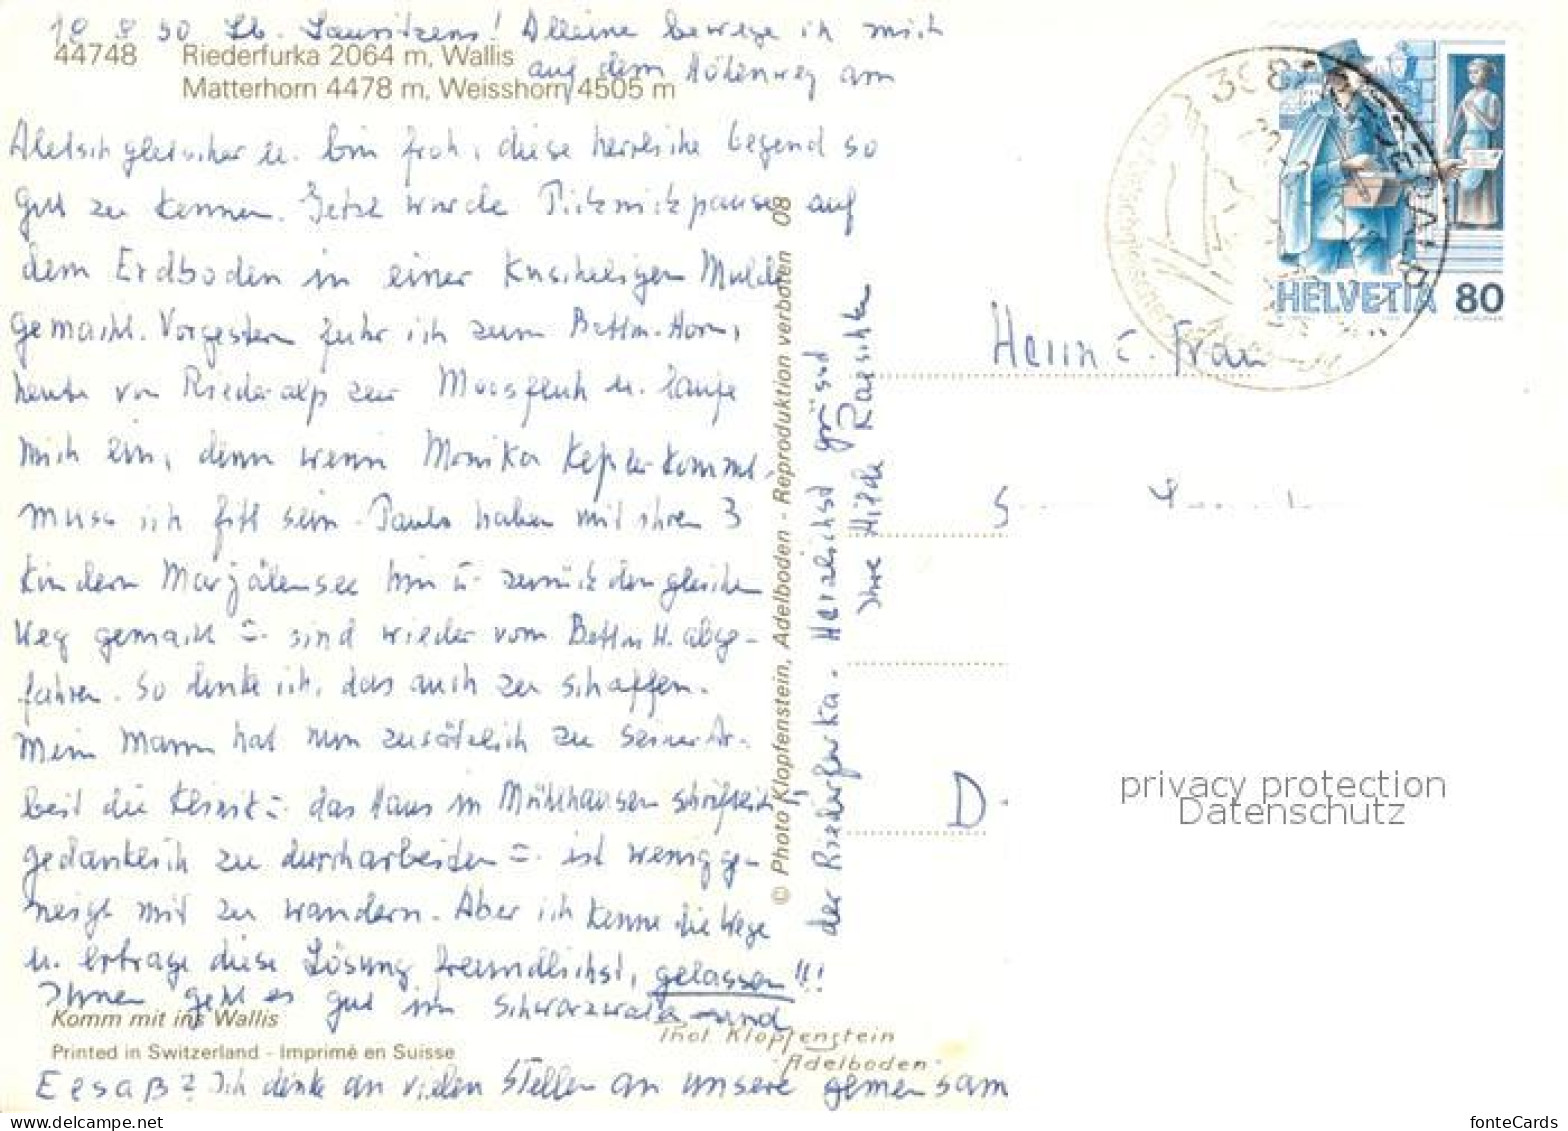 18 8 90 Lb. Lauritzens! Alleine bewege ich mich
44748 Riederfurka 2064 m, Wallis
auf dem Höhenweg am
Matterhorn 4478 m, Weisshorn 4505 m
Aletschgletscher u. bin froh, diese herrliche Gegend so
gut zu kennen. Jetzt wurde Picknickpause auf
dem Erdboden in einer kuscheligen Mulde
gemacht. Vorgestern fuhr ich zum Bettm. Horn,
heute von Riederalp zur Moosfluh u. laufe
mich ein, denn wenn Monika Kepler kommt,
muss ich fitt sein. Pauls haben mit ihren 3
Kindern Marjälensee hin u. zurück den gleichen
Weg gemacht u. sind wieder vom Bettm H. abge-
fahren. So denke ich, das auch zu schaffen.
Mein Mann hat nun zusätzlich zu seiner Ar-
beit die Klinik u. das Haus in Mühlhausen schriftlich
gedanklich zu durcharbeiten u. ist wenig ge-
neigt mit zu wandern. Aber ich kenne die Wege
u. ertrage diese Lösung freundlichst, gelassen!!!
Ihnen geht es gut im Schwarzwald und
Komm mit ins Wallis
Printed in Switzerland - Imprimé en Suisse
Phot. Klopfenstein
Adelboden
Elsaß? Ich denke an vielen Stellen an unsere gemeinsam
© Photo Klopfenstein, Adelboden - Reproduktion verboten 08
der Riederfurka. Herzlichst grüsst
Ihre Hilde
HELVETIA 80
Herrn u. Frau
D
privacy protection
Datenschutz
fonteCards